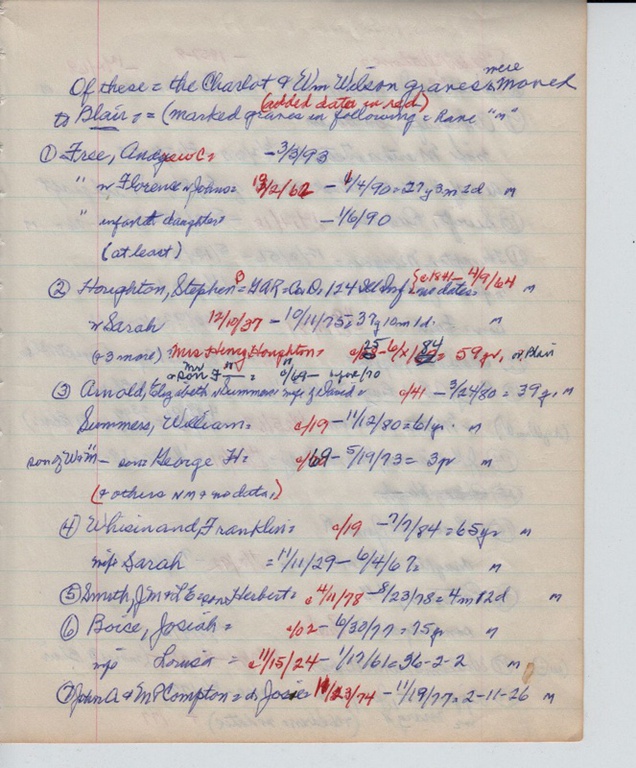 Of these = the Charlot & Wm Wilson graves were moved
(added dates in red)
to Blair := (marked graves in following = have "m"
① Free, Andrew C = - 3/3/93
" w Florence w Johns = 13/2/62 - 1/4/90 = 27y 3m 2d m
" infant daughter = - 1/6/90
(at least)
② Houghton, Stephen B = GAR = Co D, 124 Ill Inf {c 1841 - 4/9/64 = no dates = m
w Sarah 12/10/37 - 10/11/75 = 37y 10m 1d = m
(+3 more) = Mrs Henry Houghton = c/25 - 6/x/84 = 59 yr, Blair
son
③ Arnold, Elizabeth w Summers wife of David = c/41 - 3/24/80 = 39 y, m
Summers, William = c/19 - 11/12/80 = 61 yr. m
son of W & M - son = George H = c/69 - 5/19/73 = 3 yr m
(+ others N M + no data,)
④ Whisinand, Franklin = c/19 - 7/7/84 = 65 yr m
wife Sarah = 11/11/29 - 6/4/67 = m
⑤ Smith, J M + L E = son Herbert = c 4/11/78 - 8/23/78 = 4m 12d m
⑥ Boice, Josiah = c/02 - 6/30/77 = 75 yr m
wife Louisa = c 11/15/24 - 1/17/61 = 36-2-2 m
⑦ John A & M Compton = d Josie = 11/23/74 - 11/19/77 = 2-11-26 m